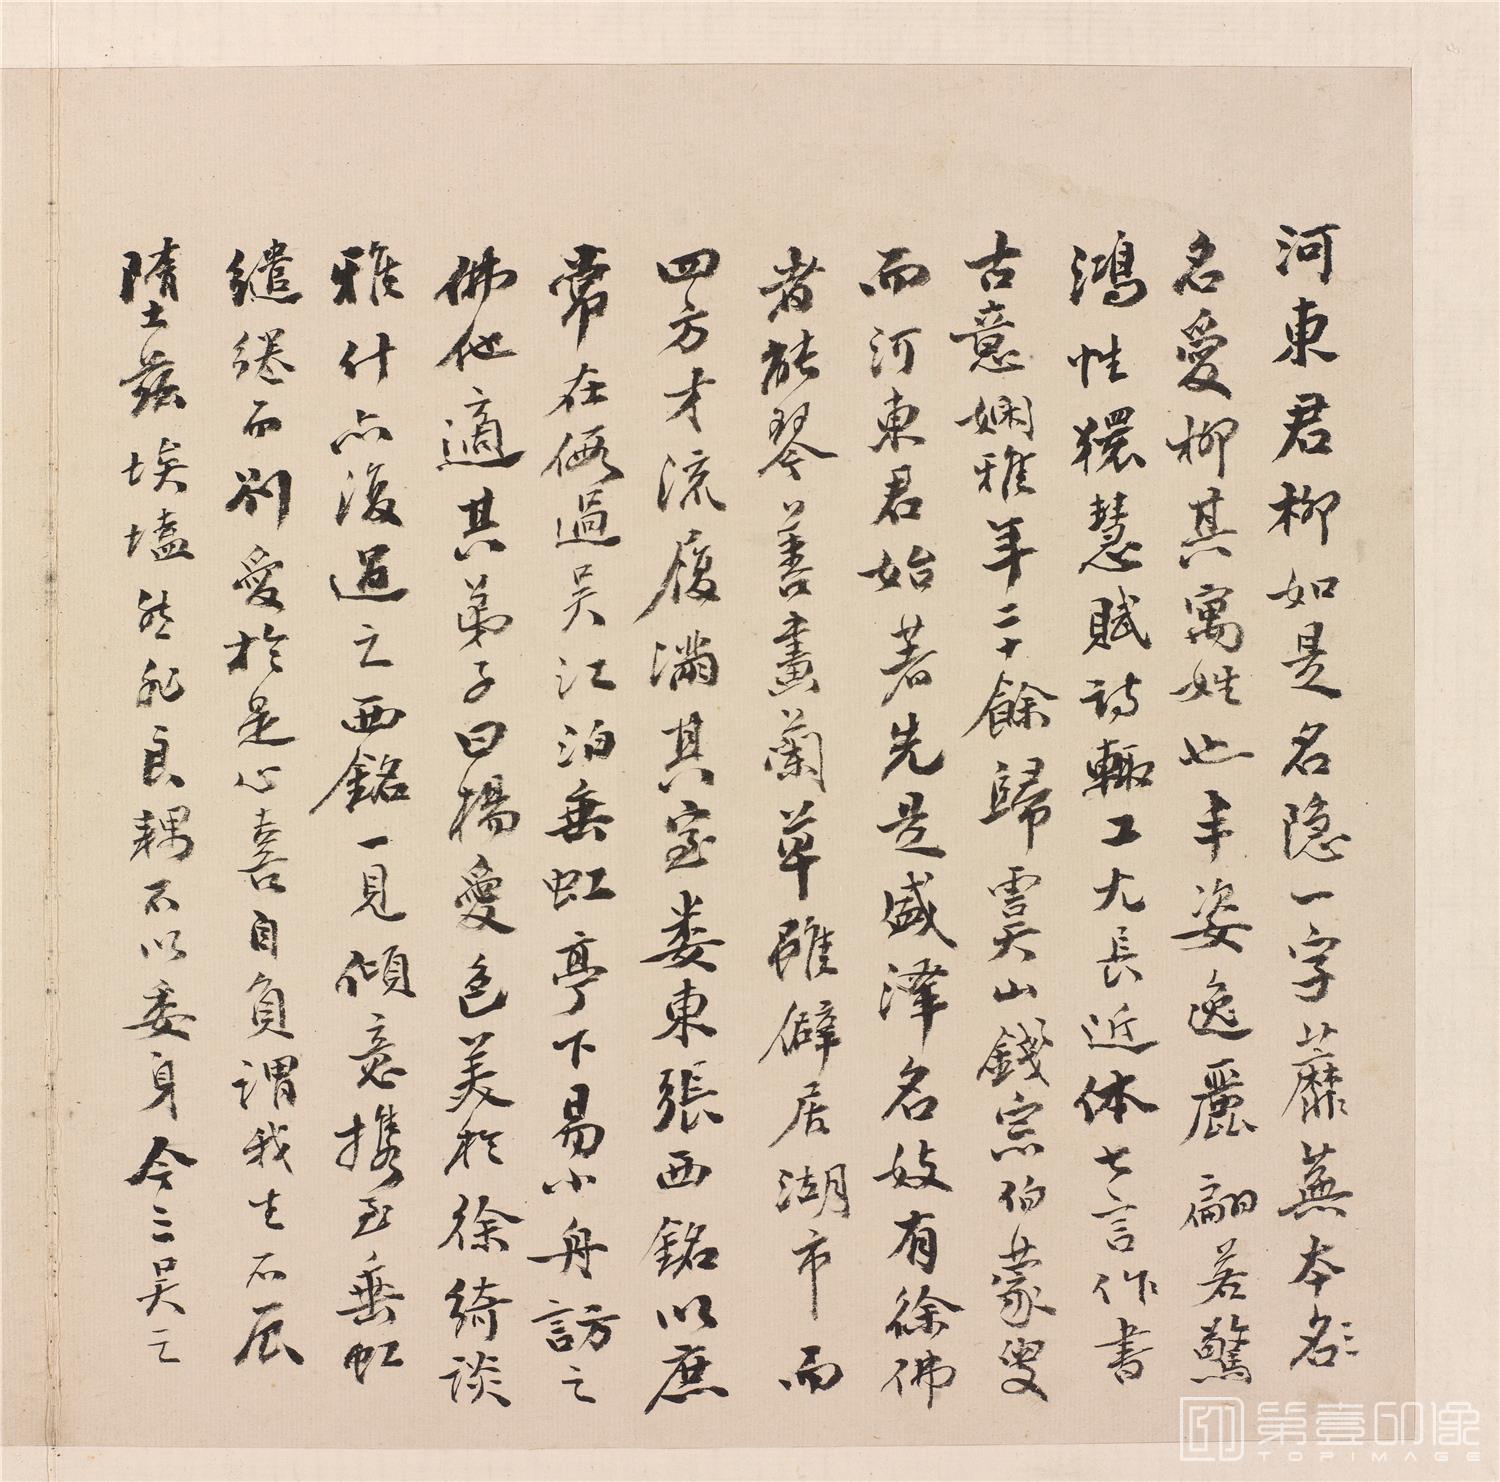 河東君柳如是名隐一字蘼蕪本名〻
名愛柳其寓姓也丰姿逸麗翩若驚
鴻性獧慧賦詩輙工尤長近体七言作書
古意嫻雅年二十餘歸雲山錢宗伯蒙叟
而河東君始著先是盛澤名妓有徐佛
者能琴善畫蘭草雖僻居湖市而
四方才流履滿其室婁東張西銘以庶
常在假過吳江泊垂虹亭下易小舟訪之
佛他適其弟子曰楊愛色美於徐綺談
雅什亦復過之西銘一見傾意携至垂虹
繾綣而別愛於是心喜自負謂我生不辰
墮茲埃壒然非良耦不以委身今三吳之
第壹印像
TOPIMAGE